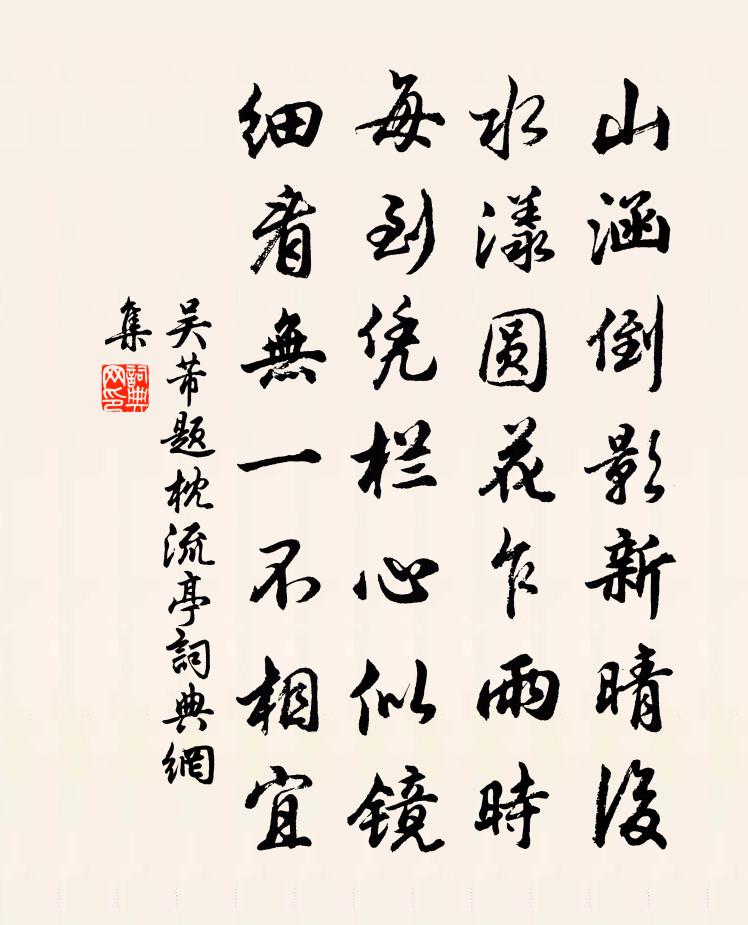 山涵倒影新晴後
水漾圆花乍雨時
每到凭栏心似镜
细看無一不相宜
吴芾題枕流亭詞典網
集
詞典
网印